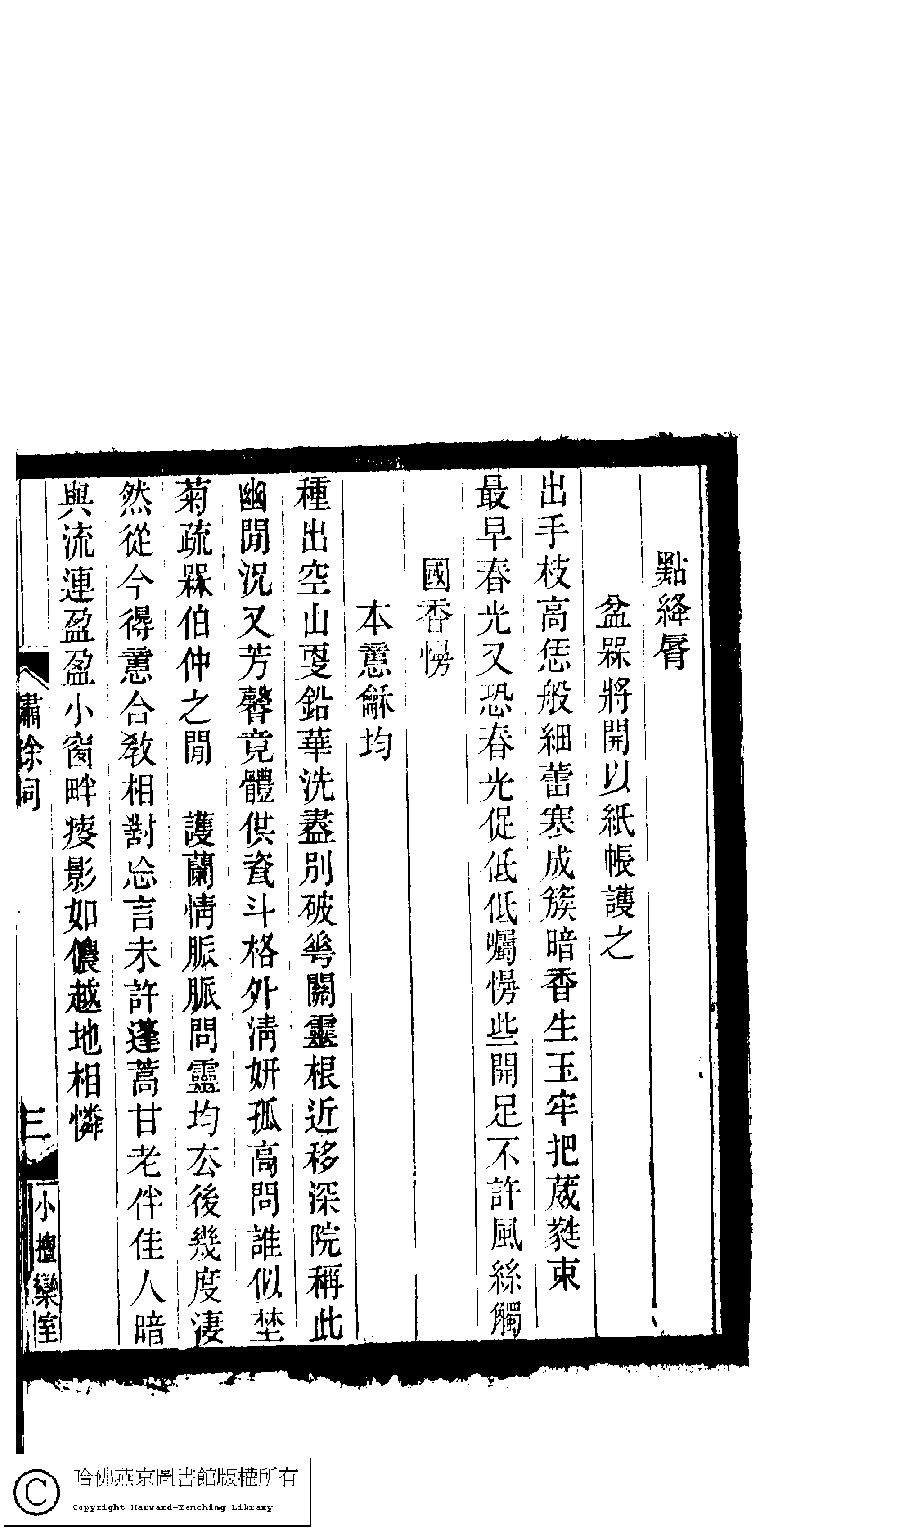 點絳脣
盆槑將開以紙帳護之
出手枝高恁般細蕾塞成簇暗香生玉牢把葳蕤束
最早春光又恐春光促低低囑愣些開足不許風絲觸
國香愣
本意龢均
種出空山㪅鉛華洗盡別破雩關靈根近移深院稱此
幽閒況又芳馨竟體供瓷斗格外清妍孤高問誰似埜
菊疏槑伯仲之閒　護蘭情脈脈問靈均去後幾度淒
然從今得意合敎相對忘言未許蓬蒿甘老伴佳人暗
與流連盈盈小窗畔瘦影如儂越地相憐
三
小檀欒室
哈佛燕京圖書館版權所有
Copyright Harvard-Yenching Library